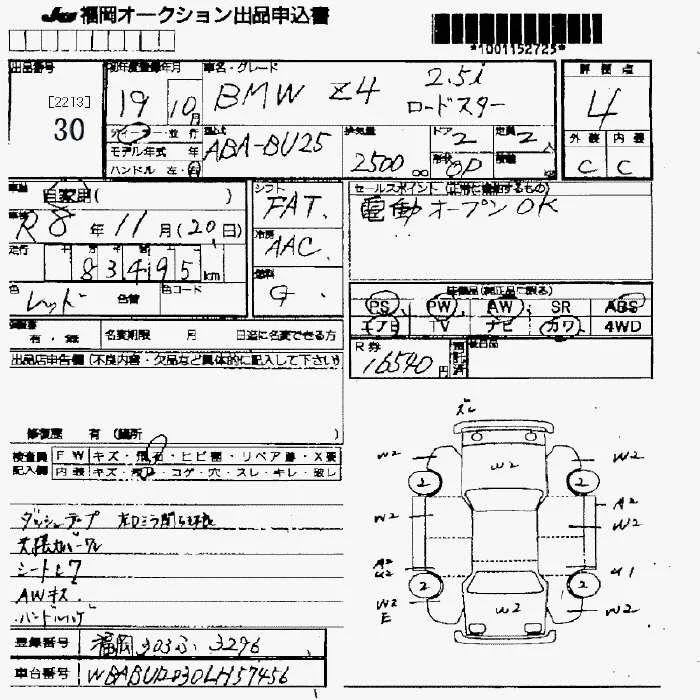 JU 福岡オークション出品申込書
*1001152725*
出品番号
[2213]
30
初年度登録年月
19 10月
ディーラー・並行
モデル年式 年
ハンドル 左・右
車名・グレード
BMW Z4 2.5i
ロードスター
型式
ABA-BU25
排気量
2500 cc
ドア 2
形状 OP
定員 2人
積載
評価点
4
外装 内装
C C
自家用( )
車検
R8年 11月(20日)
走行
83495 km
色 レッド 色替
色コード
シフト
FAT
冷房
AAC
燃料
G
セールスポイント(正常に機能するもの)
電動オープン OK
装備品(純正品に限る)
PS PW AW SR ABS
エアB TV ナビ カワ 4WD
有・無
名変期限 月 日迄に名変できる方
R券
16540円
出品店申告欄(不良内容・欠品など具体的に記入して下さい)
修復歴 有(箇所 )
検査員 FW キズ・飛石・ヒビ割・リペア跡・X要
記入欄 内装 キズ・コゲ・穴・スレ・キレ・破レ
シート
AWキズ
ズレ
W2 W2 W2
2 2
W2 A2
W2
A2
U2 U1
2 2
W2 W2 W2
E
登録番号 福岡 303 ふ 3296
車台番号 WBABU12030LH57456